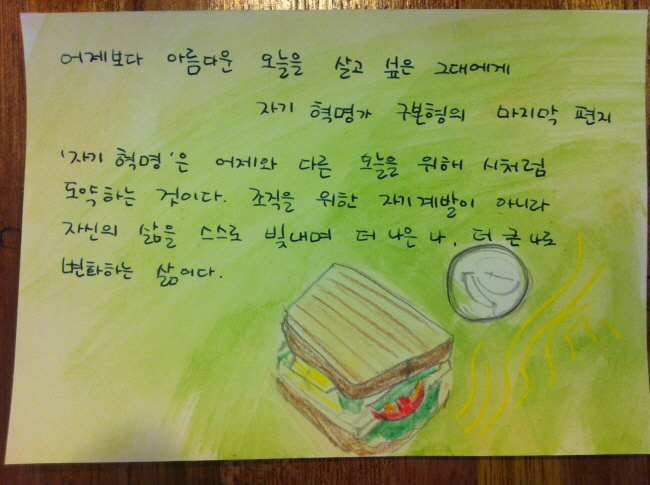 어제보다 아름다운 오늘을 살고 싶은 그대에게
자기 혁명가 구본형의 마지막 편지
'자기 혁명'은 어제와 다른 오늘을 위해 시처럼
도약하는 것이다. 조직을 위한 자기계발이 아니라
자신의 삶을 스스로 빛내며 더 나은 나, 더 큰 나로
변화하는 삶이다.